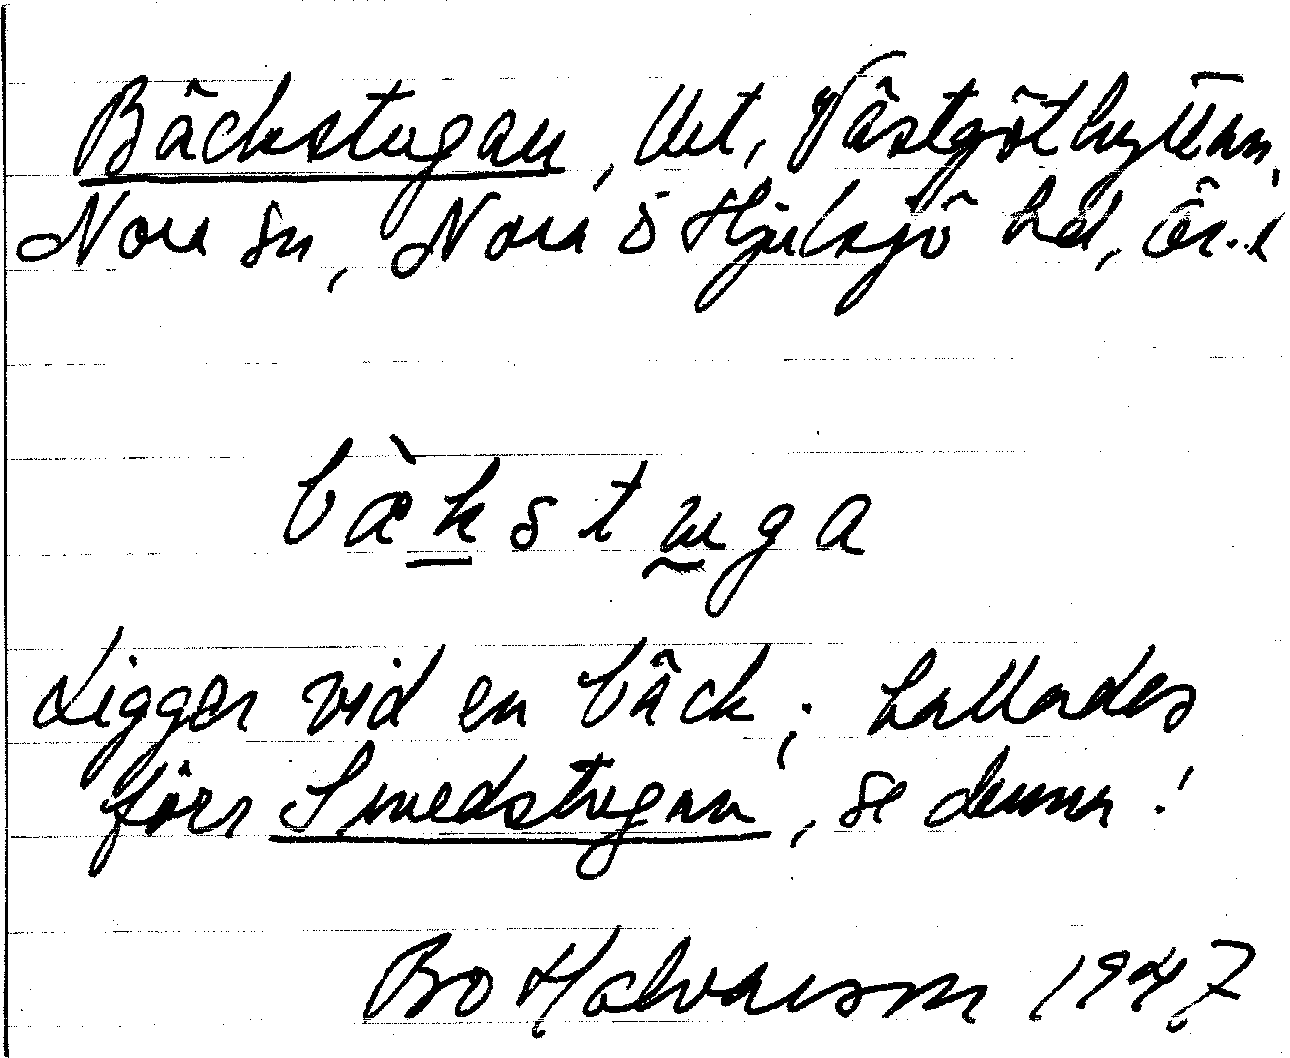 Bäckstugan, Utt, Västgöthyttan,
Nora sn, Nora o Hjulsjö hd, Ör. l
bæ̀kstuga
Ligger vid en bäck; kallades
förr Smedstugan, se denna!
Bo Halvarson 1947